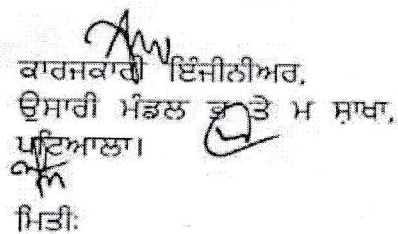 ਕਾਰਜਕਾਰੀ ਇੰਜੀਨੀਅਰ,
ਉਸਾਰੀ ਮੰਡਲ ਭ ਤੇ ਮ ਸ਼ਾਖਾ,
ਪਟਿਆਲਾ।
ਮਿਤੀ: